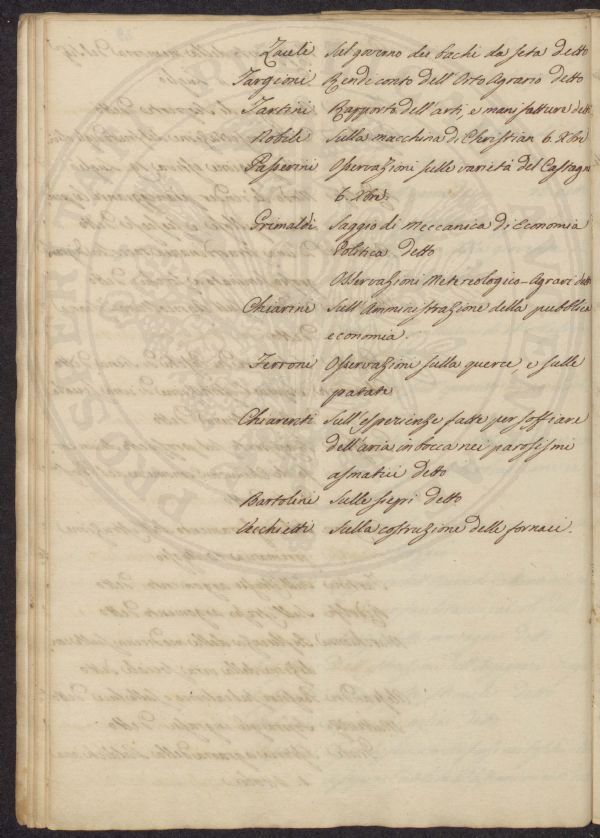 Zauli Sul governo dei bachi da seta detto
Targioni Rendiconto dell'Orto Agrario detto
Tartini Rapporto dell'arti, e manifatture dett.
Nobili Sulla macchina di Christian 6. Xbre
Passerini Osservazioni sulle varietà del Castagn
6. Xbre.
Grimaldi Saggio di Meccanica di Economia
Politica detto
Osservazioni Metereologico-Agrarie detto
Chiarini Sull'Amministrazione della pubblica
economia.
Ferroni Osservazioni sulla querce, e sulle
patate
Chiarenti Sull'esperienze fatte per soffiare
dell'aria in bocca nei parosismi
asmatici detto
Bartolini Sulle siepi detto
Vecchietti Sulla costruzione delle fornaci.
PROSPERITATI